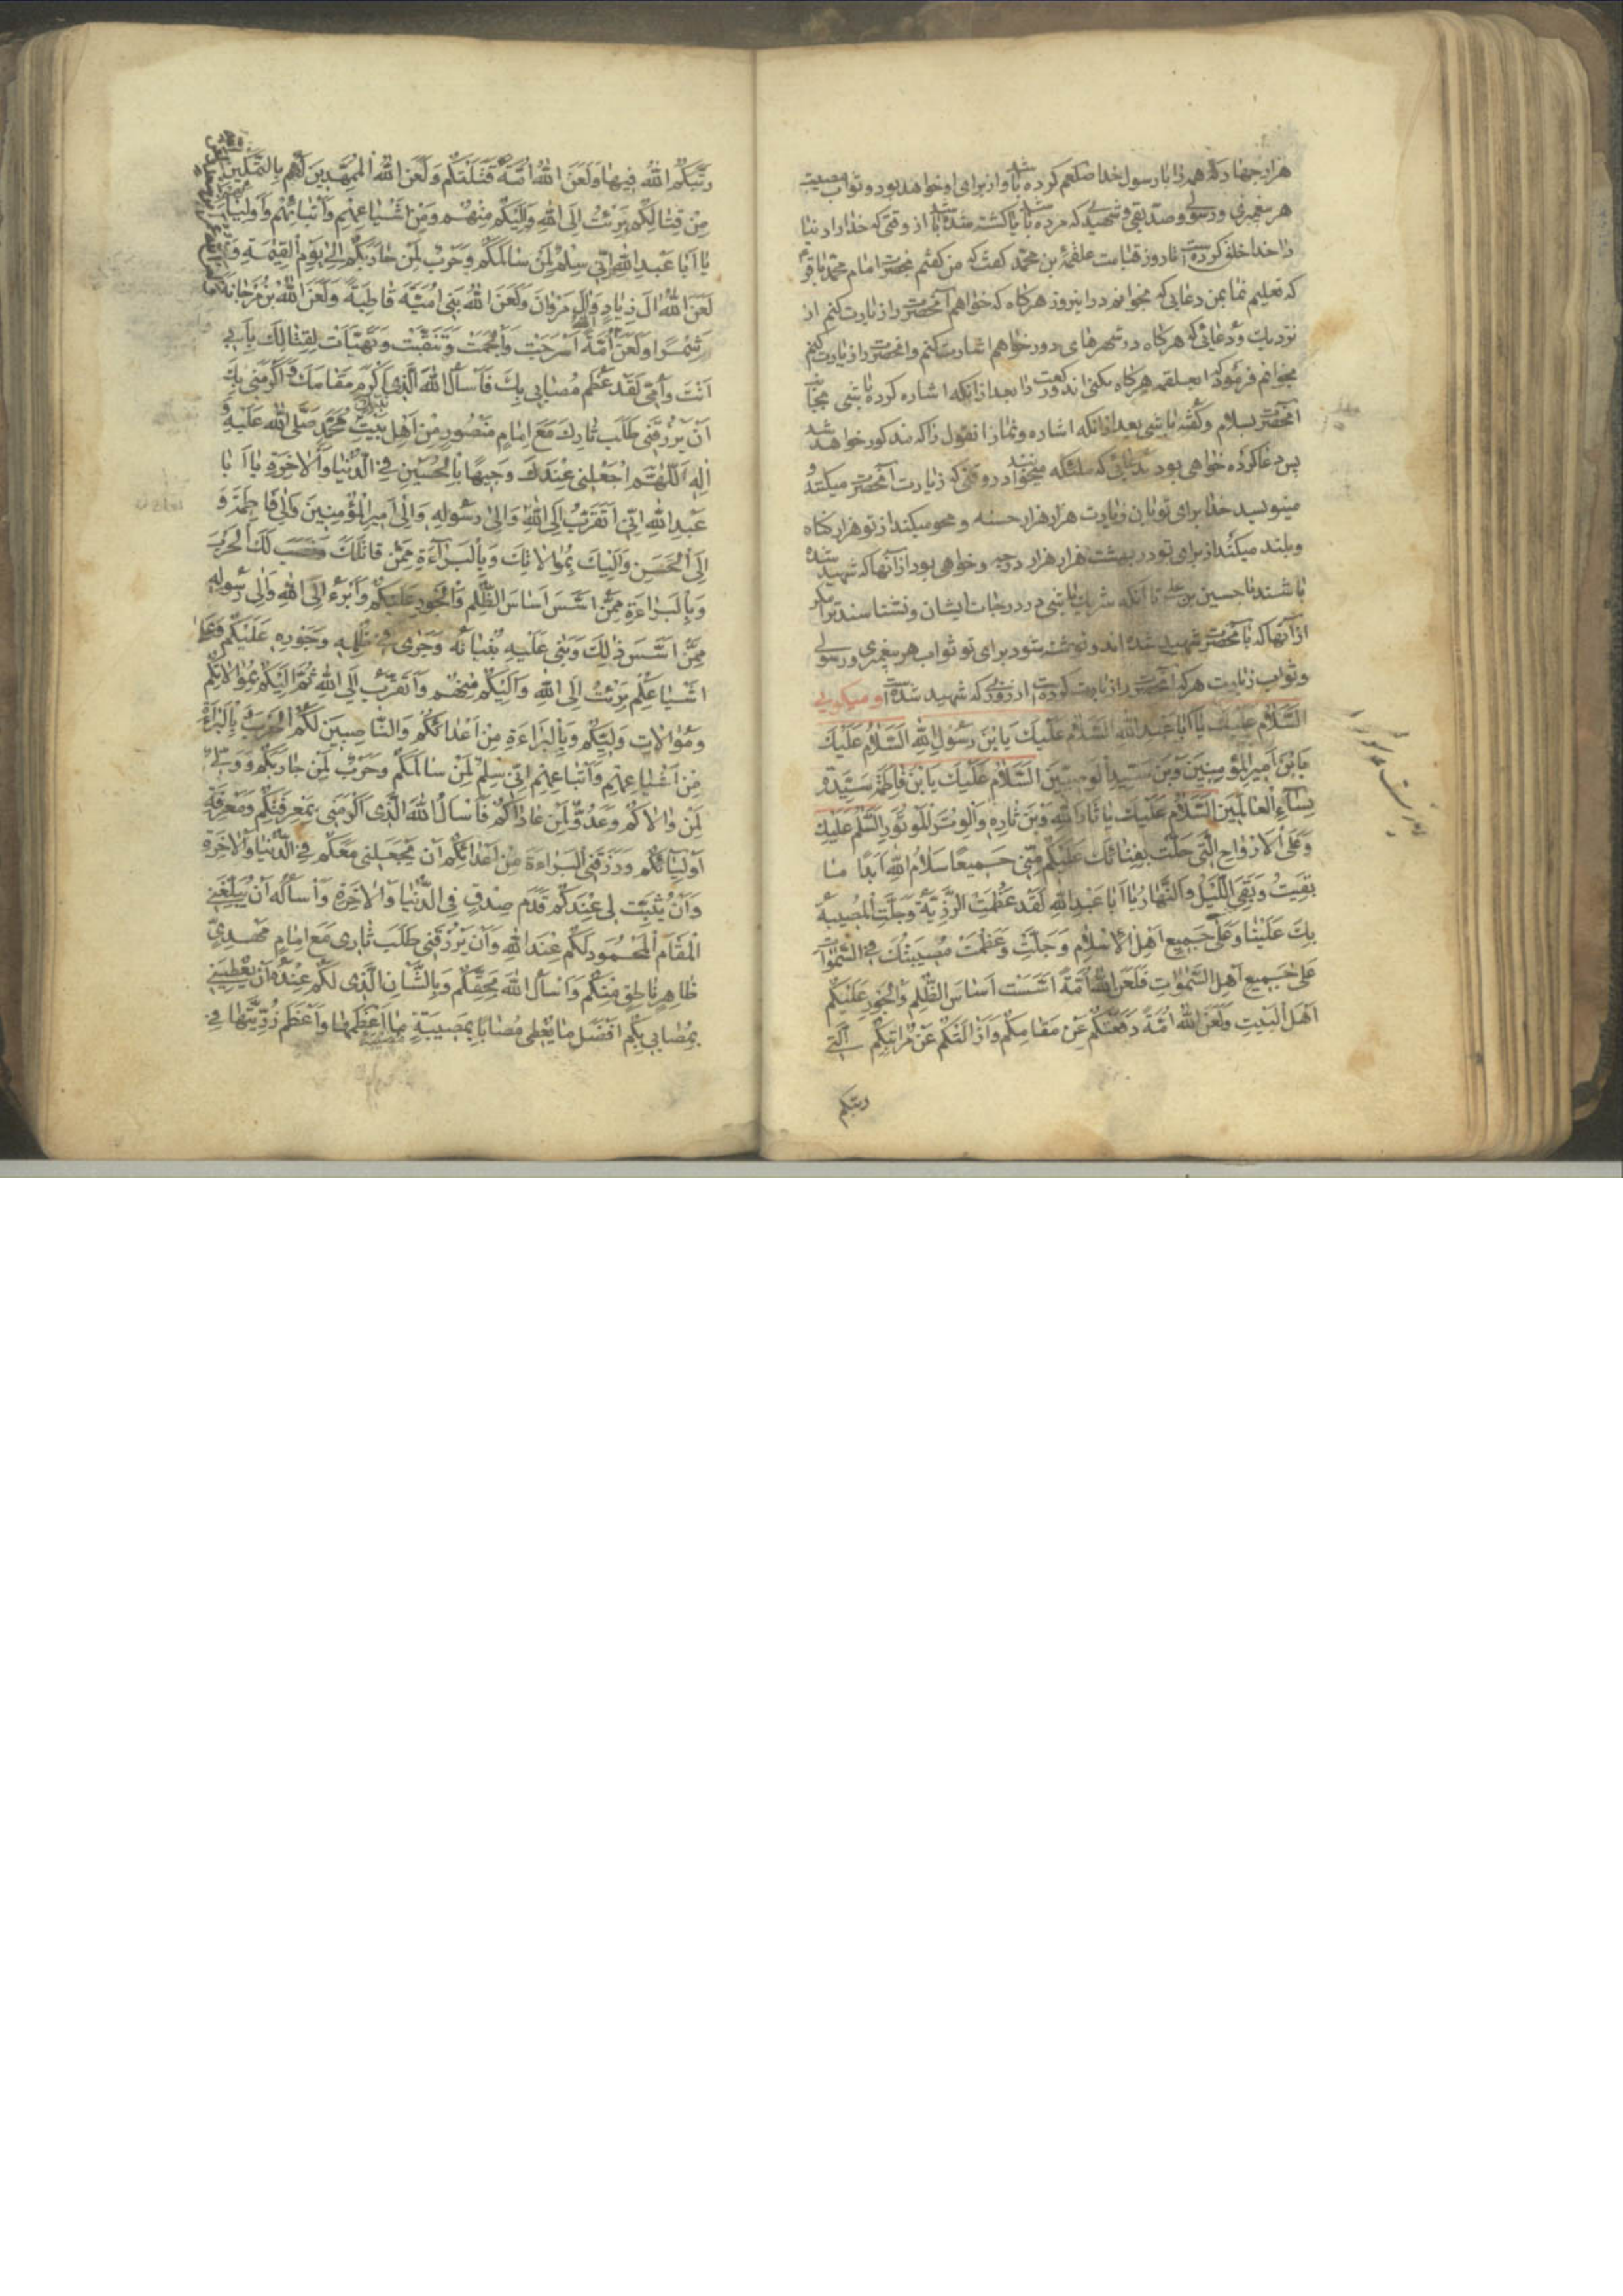 هزار جهاد که همه را با رسول خدا صلعم کرده باشد و از برای او خواهد بود ثواب مصیبت
هر پیغمبری و رسولی و صدیقی و شهیدی که مرده باشد یا کشته شده باشد از وقتی که خدا دنیا
را خدا خلق کرده است تا روز قیامت علقمة بن محمد گفت که من گفتم بحضرت امام محمد باقر
که تعلیم نما بمن دعایی که بخوانم در این روز هرگاه که خواهم آنحضرت را زیارت کنم از
نزدیک و دعائی که هرگاه در شهرهای دور خواهم اشارت کنم و آنحضرت را زیارت کنم
بخوانم فرمود که ای علقمه هرگاه بکنی اندو رکعت را بعد از آنکه اشاره کرده باشی بجانب
آنحضرت بسلام و گفته باشی بعد از آنکه اشاره و نماز این قول را که مذکور خواهد شد
پس دعا کرده خواهی بود بدعائی که ملئکه میخوانند در وقتی که زیارت آنحضرت میکنند و
مینویسد خدا برای تو باین زیارت هزار هزار حسنه و محو میکند از تو هزار گناه
و بلند میکند از برای تو در بهشت هزار هزار درجه و خواهی بود از آنها که شهید شده
باشند با حسین بن علی تا آنکه شریک باشی در درجات ایشان و نشناسند ترا مگر
از آنها که با آنحضرت شهید شده اند و نوشته شود برای تو ثواب هر پیغمبری و رسولی
و ثواب زیارت هر که آنحضرت را زیارت کرده است از روزی که شهید شده است و میگویی
اَلسَّلامُ عَلَیْكَ یا اَبا عَبدِ اللهِ السَّلامُ عَلَیْكَ یَا بْنَ رَسُولِ اللهِ اَلسَّلامُ عَلَیْكَ
یَا بْنَ اَمیرِ المُؤمِنینَ وَبْنَ سَیِّدِ الوَصِیّینَ السَّلامُ عَلَیْكَ یَا بْنَ فاطِمَةَ سَیِّدَةِ
نِسآءِ العالَمینَ السَّلامُ عَلَیْكَ یا ثارَ اللهِ وَبْنَ ثارِهِ وَالوِتْرَ المَوتُورَ السَّلامُ عَلَیْكَ
وَعَلَی الاَرْواحِ الَّتی حَلَّتْ بِفِنائِكَ عَلَیْکُمْ مِنّی جَمیعًا سَلامُ اللهِ اَبَدًا ما
بَقیتُ وَبَقِیَ اللَّیْلُ وَالنَّهارُ یا اَبا عَبْدِ اللهِ لَقَدْ عَظُمَتِ الرَّزِیَّةُ وَجَلَّتِ المُصیبَةُ
بِكَ عَلَیْنا وَعَلی جَمیعِ اَهْلِ الاِسْلامِ وَجَلَّتْ وَعَظُمَتْ مُصیبَتُكَ فِی السَّمواتِ
عَلی جَمیعِ اَهْلِ السَّمواتِ فَلَعَنَ اللهُ اُمَّةً اَسَّسَتْ اَساسَ الظُّلْمِ وَالجَوْرِ عَلَیْکُمْ
اَهْلَ البَیْتِ وَلَعَنَ اللهُ اُمَّةً دَفَعَتْکُمْ عَنْ مَقامِکُمْ وَاَزالَتْکُمْ عَنْ مَراتِبِکُمُ الَّتی
رتبکم
رَتَّبَکُمُ اللهُ فیها وَلَعَنَ اللهُ اُمَّةً قَتَلَتْکُمْ وَلَعَنَ اللهُ المُمَهِّدینَ لَهُمْ بِالتَّمْکینِ
مِنْ قِتالِکُمْ بَرِئْتُ اِلَی اللهِ وَاِلَیْکُمْ مِنْهُمْ وَمِنْ اَشْیاعِهِمْ وَاَتْباعِهِمْ وَاَوْلِیائِهِمْ
یا اَبا عَبْدِ اللهِ اِنّی سِلْمٌ لِمَنْ سالَمَکُمْ وَحَرْبٌ لِمَنْ حارَبَکُمْ اِلی یَوْمِ القِیمَةِ وَ
لَعَنَ اللهُ الَ زِیادٍ وَالَ مَرْوانَ وَلَعَنَ اللهُ بَنی اُمَیَّةَ قاطِبَةً وَلَعَنَ اللهُ بْنَ مَرْجانَةَ
شِمْرًا وَلَعَنَ اللهُ اُمَّةً اَسْرَجَتْ وَاَلْجَمَتْ وَتَنَقَّبَتْ وَتَهَیَّاَتْ لِقِتالِكَ بِاَبی
اَنْتَ وَاُمّی لَقَدْ عَظُمَ مُصابی بِكَ فَاَسْاَلُ اللهَ الَّذی اَکْرَمَ مَقامَكَ وَاَکْرَمَنی بِكَ
اَنْ یَرْزُقَنی طَلَبَ ثارِكَ مَعَ اِمامٍ مَنْصُورٍ مِنْ اَهْلِ بَیْتِ مُحَمَّدٍ صَلَّی اللهُ عَلَیْهِ وَ
الِهِ اَللّهُمَّ اجْعَلْنی عِنْدَكَ وَجیهًا بِالحُسَیْنِ فِی الدُّنْیا وَالاخِرَةِ یا اَبا
عَبْدِ اللهِ اِنّی اَتَقَرَّبُ اِلَی اللهِ وَاِلی رَسُولِهِ وَاِلی اَمیرِ المُؤْمِنینَ وَاِلی فاطِمَةَ وَ
اِلَی الحَسَنِ وَاِلَیْكَ بِمُوالاتِكَ وَبِالبَرآءَةِ مِمَّنْ قاتَلَكَ وَنَصَبَ لَكَ الحَرْبَ
وَبِالبَراءَةِ مِمَّنْ اَسَّسَ اَساسَ الظُّلْمِ وَالجَوْرِ عَلَیْکُمْ وَاَبْرَءُ اِلَی اللهِ وَاِلی رَسُولِهِ
مِمَّنْ اَسَّسَ ذلِكَ وَبَنی عَلَیْهِ بُنْیانَهُ وَجَری فی ظُلْمِهِ وَجَوْرِهِ عَلَیْکُمْ وَعَلی
اَشْیاعِکُمْ بَرِئْتُ اِلَی اللهِ وَاِلَیْکُمْ مِنْهُمْ وَاَتَقَرَّبُ اِلَی اللهِ ثُمَّ اِلَیْکُمْ بِمُوالاتِکُمْ
وَمُوالاتِ وَلِیِّکُمْ وَبِالبَراءَةِ مِنْ اَعْدائِکُمْ وَالنّاصِبینَ لَکُمُ الحَرْبَ وَبِالبَراءَةِ
مِنْ اَشْیاعِهِمْ وَاَتْباعِهِمْ اِنّی سِلْمٌ لِمَنْ سالَمَکُمْ وَحَرْبٌ لِمَنْ حارَبَکُمْ وَوَلِیٌّ
لِمَنْ والاکُمْ وَعَدُوٌّ لِمَنْ عاداکُمْ فَاَسْاَلُ اللهَ الَّذی اَکْرَمَنی بِمَعْرِفَتِکُمْ وَمَعْرِفَةِ
اَوْلِیآئِکُمْ وَرَزَقَنِی البَراءَةَ مِنْ اَعْدائِکُمْ اَنْ یَجْعَلَنی مَعَکُمْ فِی الدُّنْیا وَالاخِرَةِ
وَاَنْ یُثَبِّتَ لی عِنْدَکُمْ قَدَمَ صِدْقٍ فِی الدُّنْیا وَالاخِرَةِ وَاَسْاَلُهُ اَنْ یُبَلِّغَنِی
المَقامَ المَحْمُودَ لَکُمْ عِنْدَ اللهِ وَاَنْ یَرْزُقَنی طَلَبَ ثاری مَعَ اِمامٍ مَهْدِیٍّ
ظاهِرٍ ناطِقٍ مِنْکُمْ وَاَسْاَلُ اللهَ بِحَقِّکُمْ وَبِالشَّانِ الَّذی لَکُمْ عِنْدَهُ اَنْ یُعْطِیَنی
بِمُصابی بِکُمْ اَفْضَلَ ما یُعْطی مُصابًا بِمُصیبَتِهِ مُصیبَةً ما اَعْظَمَها وَاَعْظَمَ رَزِیَّتَها فِی